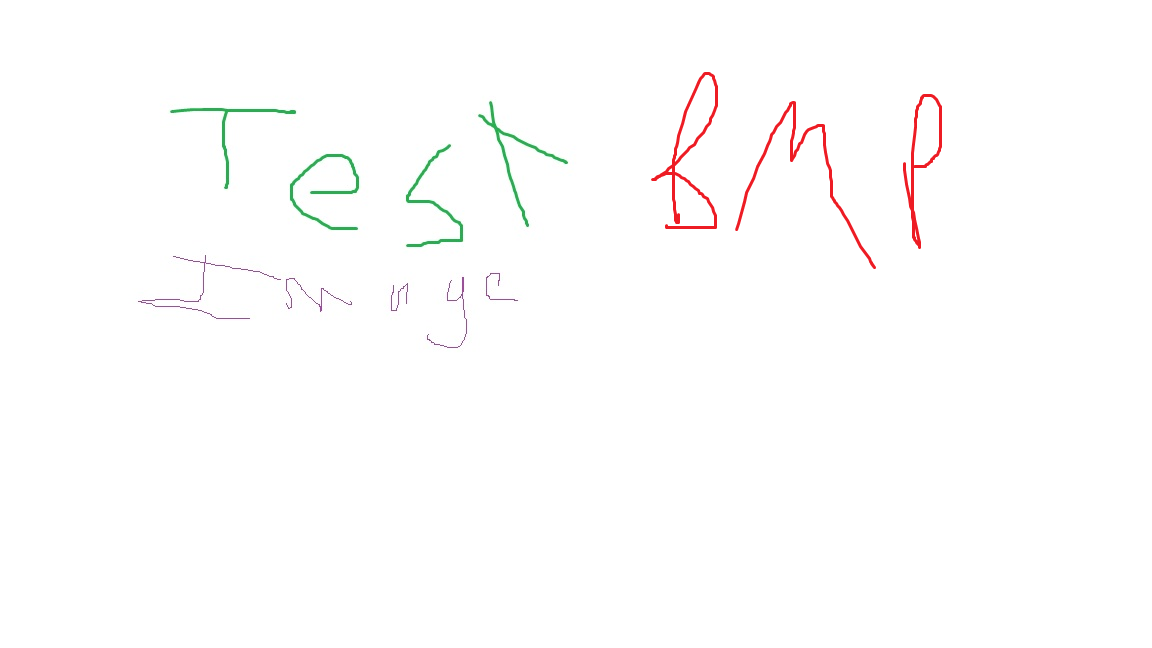 Test BMP
Image